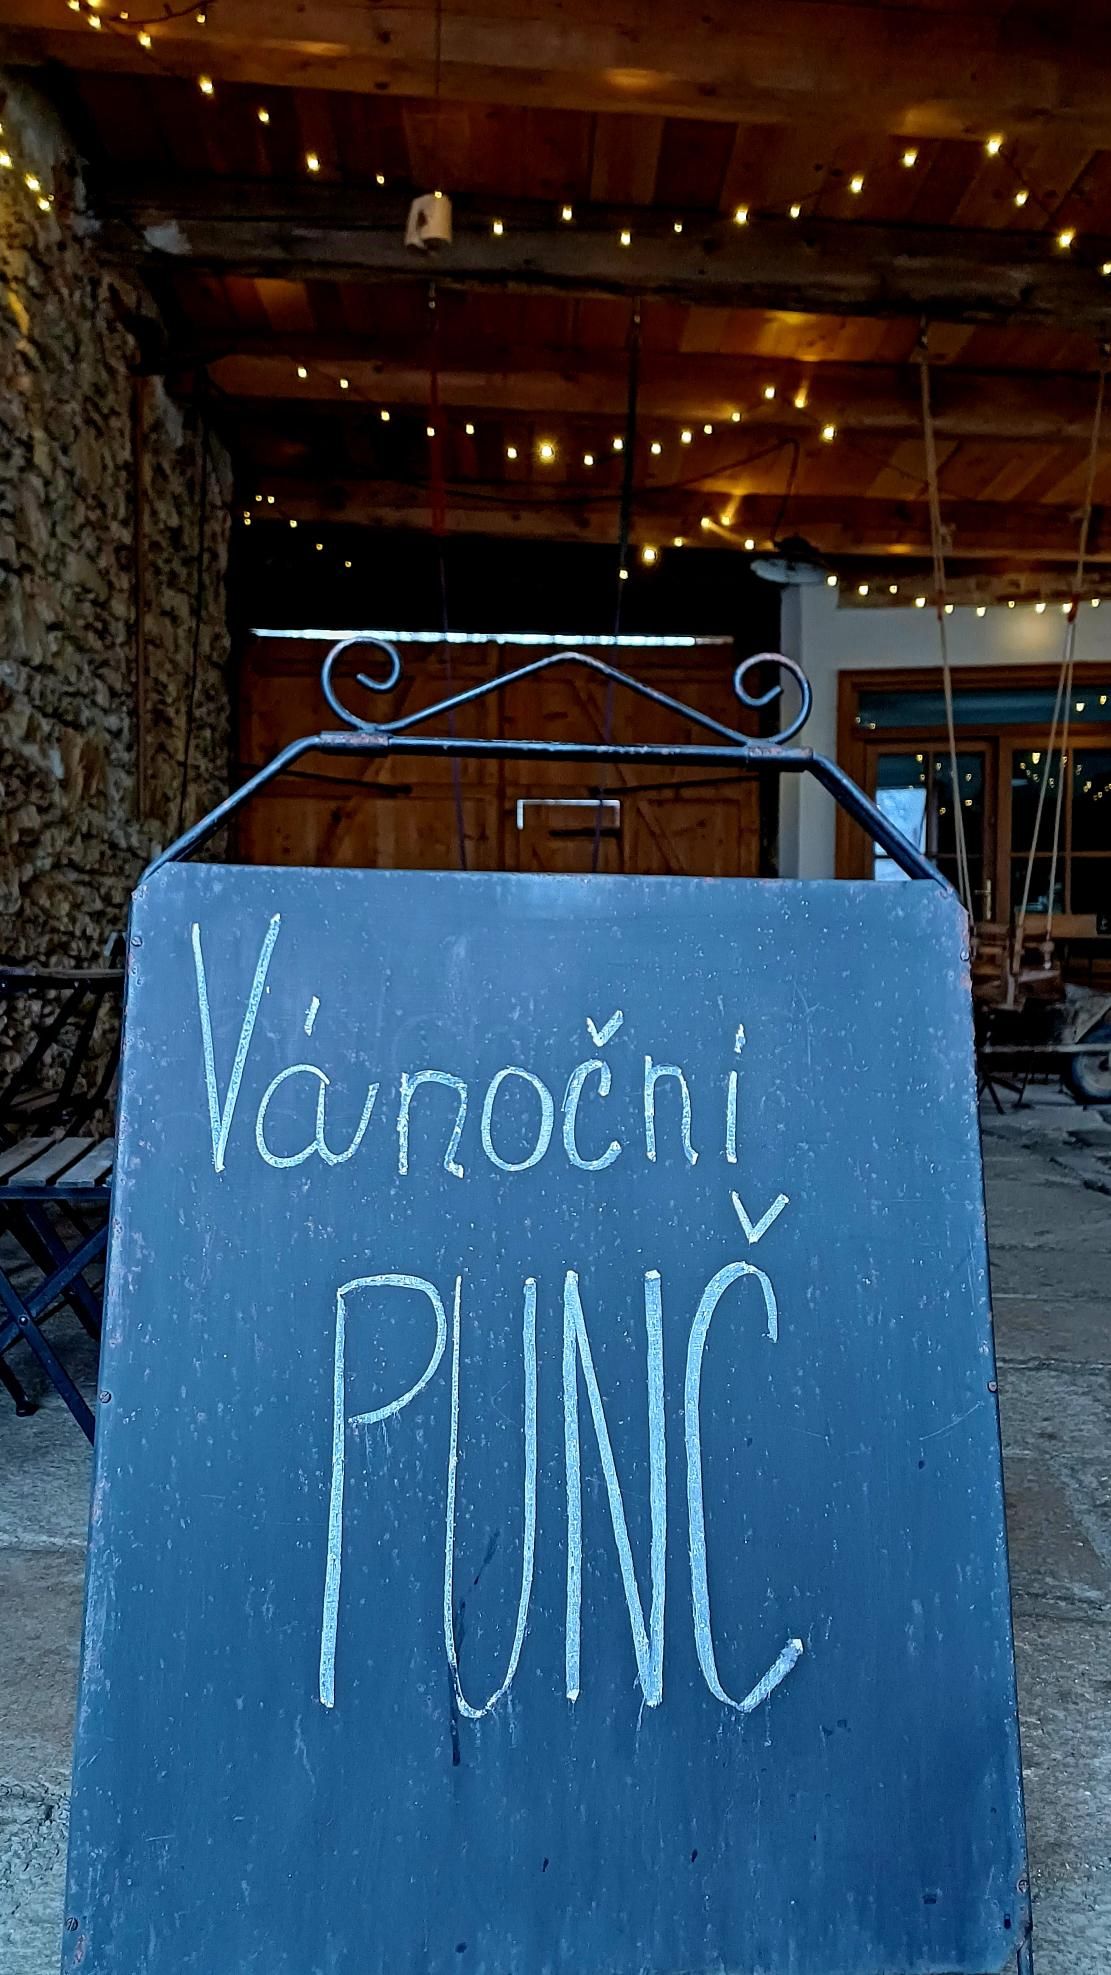 Vánoční
PUNČ